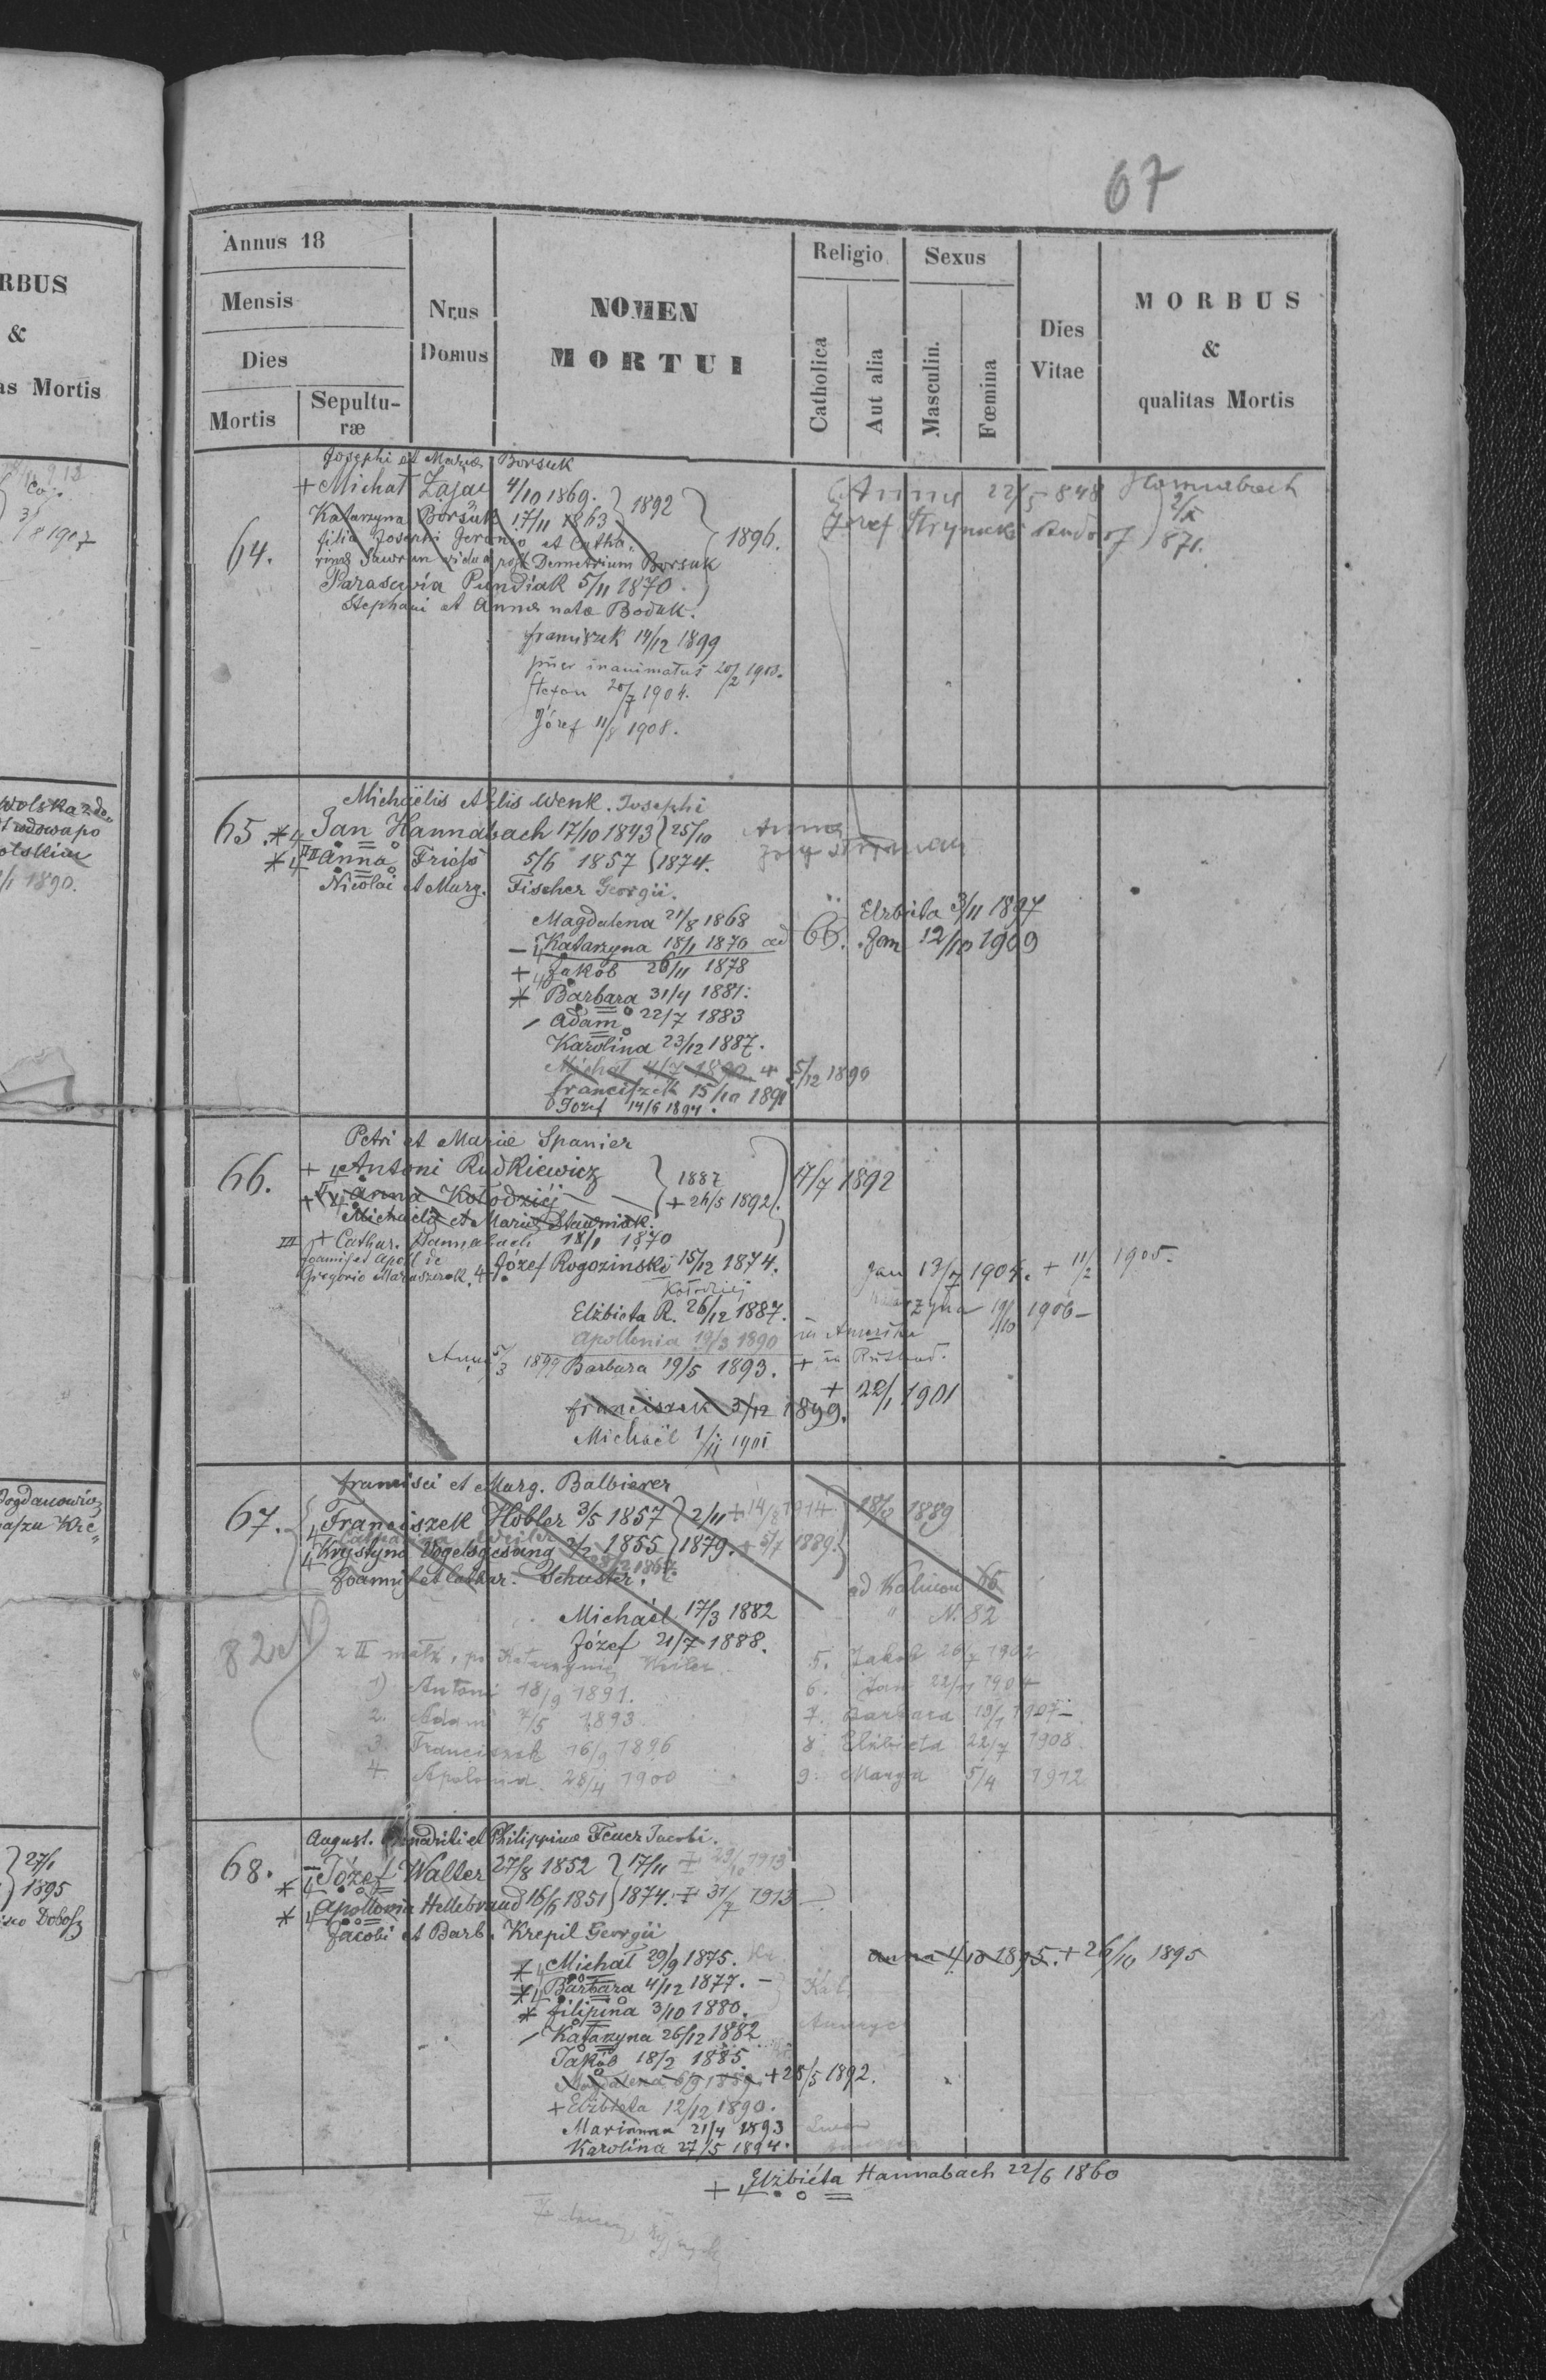 67
RBUS
&
as Mortis
1907
Wolska
wdowa po
1890.
27/1
1895
Annus 18
Mensis
Dies
Mortis
Sepultu-
ræ
Nr.us
Domus
NOMEN
MORTUI
Religio
Catholica
Aut alia
Sexus
Masculin.
Fœmina
Dies
Vitae
MORBUS
&
qualitas Mortis
64.
Josephi et Mariæ Borsuk
+ Michał Zając 4/10 1869. 1892
Katarzyna Borsuk 17/11 1863
filia Josephi et Catha-
rinæ vidua post Demetrium Borsuk
1896.
Parasewia Pundiak 5/11 1870.
Stephani et Annæ natæ Boduk.
Franciszek 14/12 1899
puer inanimatus 20/2 1903.
Stefan 20/7 1904.
Józef 11/8 1908.
Anna 22/5 848 Hannabach
Józef
871.
65.
Michaëlis Wenk. Josephi
Jan Hannabach 17/10 1843 25/10
III Anna Friess 5/6 1857 1874.
Nicolai et Marg. Fischer Georgii.
Anna
Magdalena 21/8 1868
Katarzyna 18/1 1870 ad 66.
+ Jakób 26/11 1878
Barbara 31/4 1881.
Adam 22/7 1883
Karolina 23/12 1887.
Michał 4/7 1890 + 5/12 1890
Franciszek 15/10 1891
Józef 14/6 1894.
Elżbieta 3/11 1897
Jan 12/10 1909
66.
Petri et Mariæ Spanier
+ Antoni Rudkiewicz 1887
+ II Anna Kołodziéj + 24/5 1892
17/7 1892
Michaelis et Mariæ Stawniak.
III + Cathar. Hannabach 18/1 1870
Joannis et Apoll de
Gregorio
Józef Rogozinski 15/12 1874.
Kołodziej
Elżbieta R. 26/12 1887.
Apollonia 19/3 1890 in Amerika
Anna 5/3 1899 Barbara 19/5 1893. +
Franciszek 3/12 1899. + 22/1 1901
Michaël 1/11 1901
Jan 13/7 1904. + 11/2 1905.
19/10 1906 -
67.
Francisci et Marg. Balbierer
Franciszek Hobler 3/5 1857 2/11 + 14/8 1914
Catharina Weiler
Krystyna Vogelsgesang 2/2 1855 1879. + 5/7 1889.
18/8 1889
Joannis et Cathar. Schuster.
ad Kalinow 66
" N. 82
Michaël 17/3 1882
Józef 21/7 1888.
82
z II małż. po Katarzynie Weiler
1) Antoni 18/9 1891.
2. Adam 7/5 1893
3. Franciszek 16/9 1896
4. Apolonia 28/4 1900
5. Jakob 26/7 1902
6. Jan 22/11 1904
7. Barbara 19/1 1907 -
8. Elżbieta 22/7 1908.
9. Marya 5/4 1912
68.
August. et Philippinæ Feuer Jacobi.
Józef Walter 27/8 1852 17/11 + 29/10 1913
Apollonia Hellebrand 16/6 1851 1874. + 31/7 1913
Jacobi et Barb. Krepil Georgii
Michał 29/9 1875.
Barbara 4/12 1877. -
Filipina 3/10 1880.
Katarzyna 26/12 1882
Jakób 18/2 1885.
Magdalena 6/9 1889. + 28/5 1892.
+ Elżbieta 12/12 1890.
Marianna 21/4 1893
Karolina 27/5 1894.
Anna 4/10 1895. + 26/10 1895
+ Elżbiéta Hannabach 22/6 1860